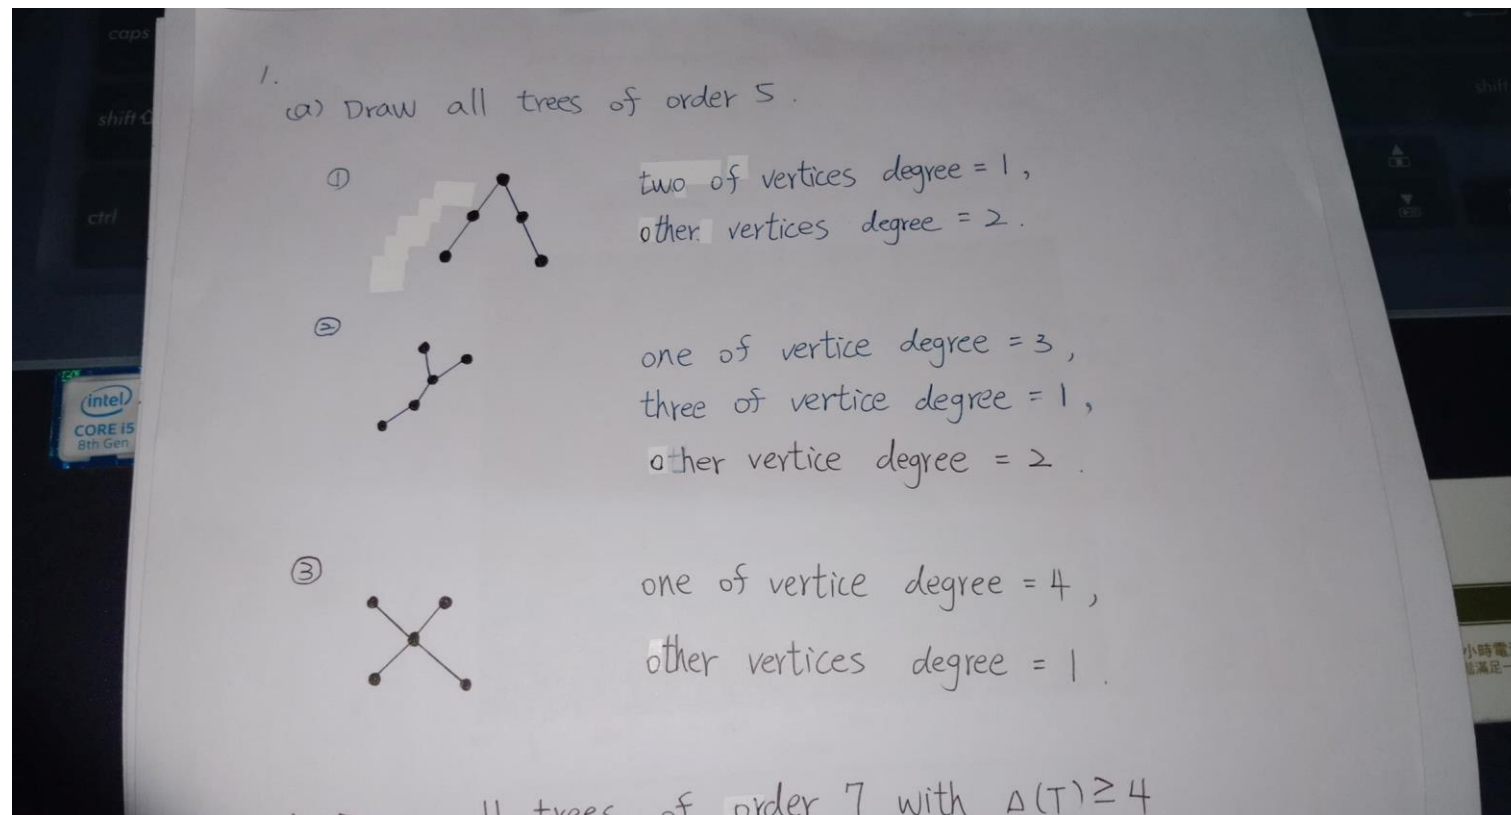 caps
shift
ctrl
shift
1.
(a) Draw all trees of order 5.
① two of vertices degree = 1,
other vertices degree = 2.
② one of vertice degree = 3,
three of vertice degree = 1,
other vertice degree = 2.
③ one of vertice degree = 4,
other vertices degree = 1.
trees of order 7 with Δ(T) ≥ 4
intel
CORE i5
8th Gen
小時電
滿足一